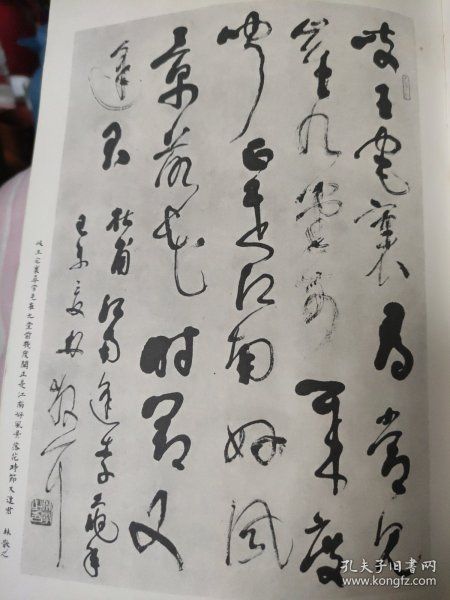 岐王宅里尋常見
崔九堂前幾度
聞正是江南好風
景落花時節又
逢君
杜甫江南逢李龜年
林散之
岐王宅裏尋常見崔九堂前幾度聞正是江南好風景落花時節又逢君 林散之
孔夫子旧书网
www.kongfz.com